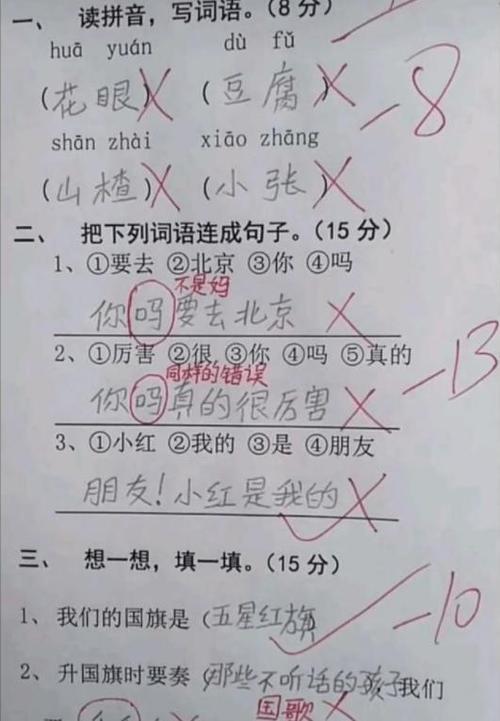 一、 读拼音，写词语。（8 分）
huā yuán dù fǔ
（花眼） （豆腐）
-8
shān zhài xiāo zhāng
（山楂） （小张）
二、 把下列词语连成句子。（15 分）
1、①要去 ②北京 ③你 ④吗
不是妈
你吗要去北京
2、①厉害 ②很 ③你 ④吗 ⑤真的
同样的错误
-13
你吗真的很厉害
3、①小红 ②我的 ③是 ④朋友
朋友！小红是我的
三、 想一想，填一填。（15 分）
1、我们的国旗是（五星红旗
-10
2、升国旗时要奏（那些不听话的孩子我们
国歌